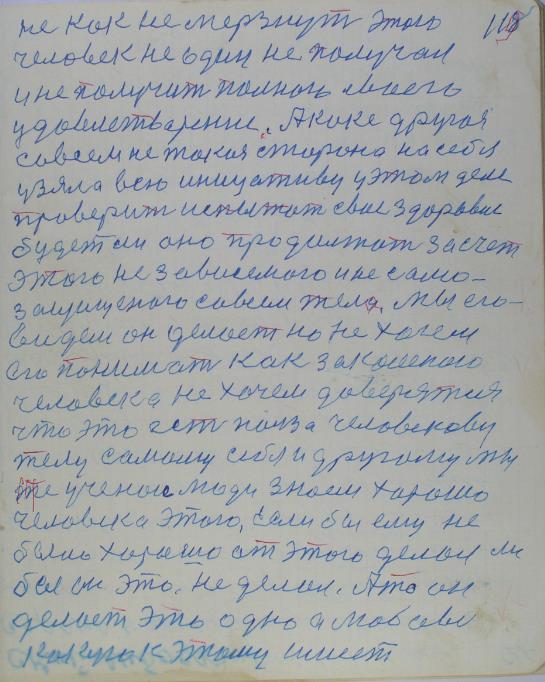 не как не мерзнут этого 118
человек не один не получал
и не получит полного своего
удовлетварение. А како другоя
совсем не такоя сторона на себя
узяла всю инициативу у этом деле
проверит испытат свое здоровье
будет ли оно продолжат за счет
этого не зависемого и не само-
защищеного совсем тела. Мы его
видем он делает но не хочем
его понимат как закаленого
человека не хочем доверятся
что это ест полза человекову
телу самому себя и другому мы
те ученые люди знаем хорошо
человека этого, если бы ему не
было хорошо от этого делал ли
бы он это. Не делал. А то он
делает это одно а любове
какую к этому имеет